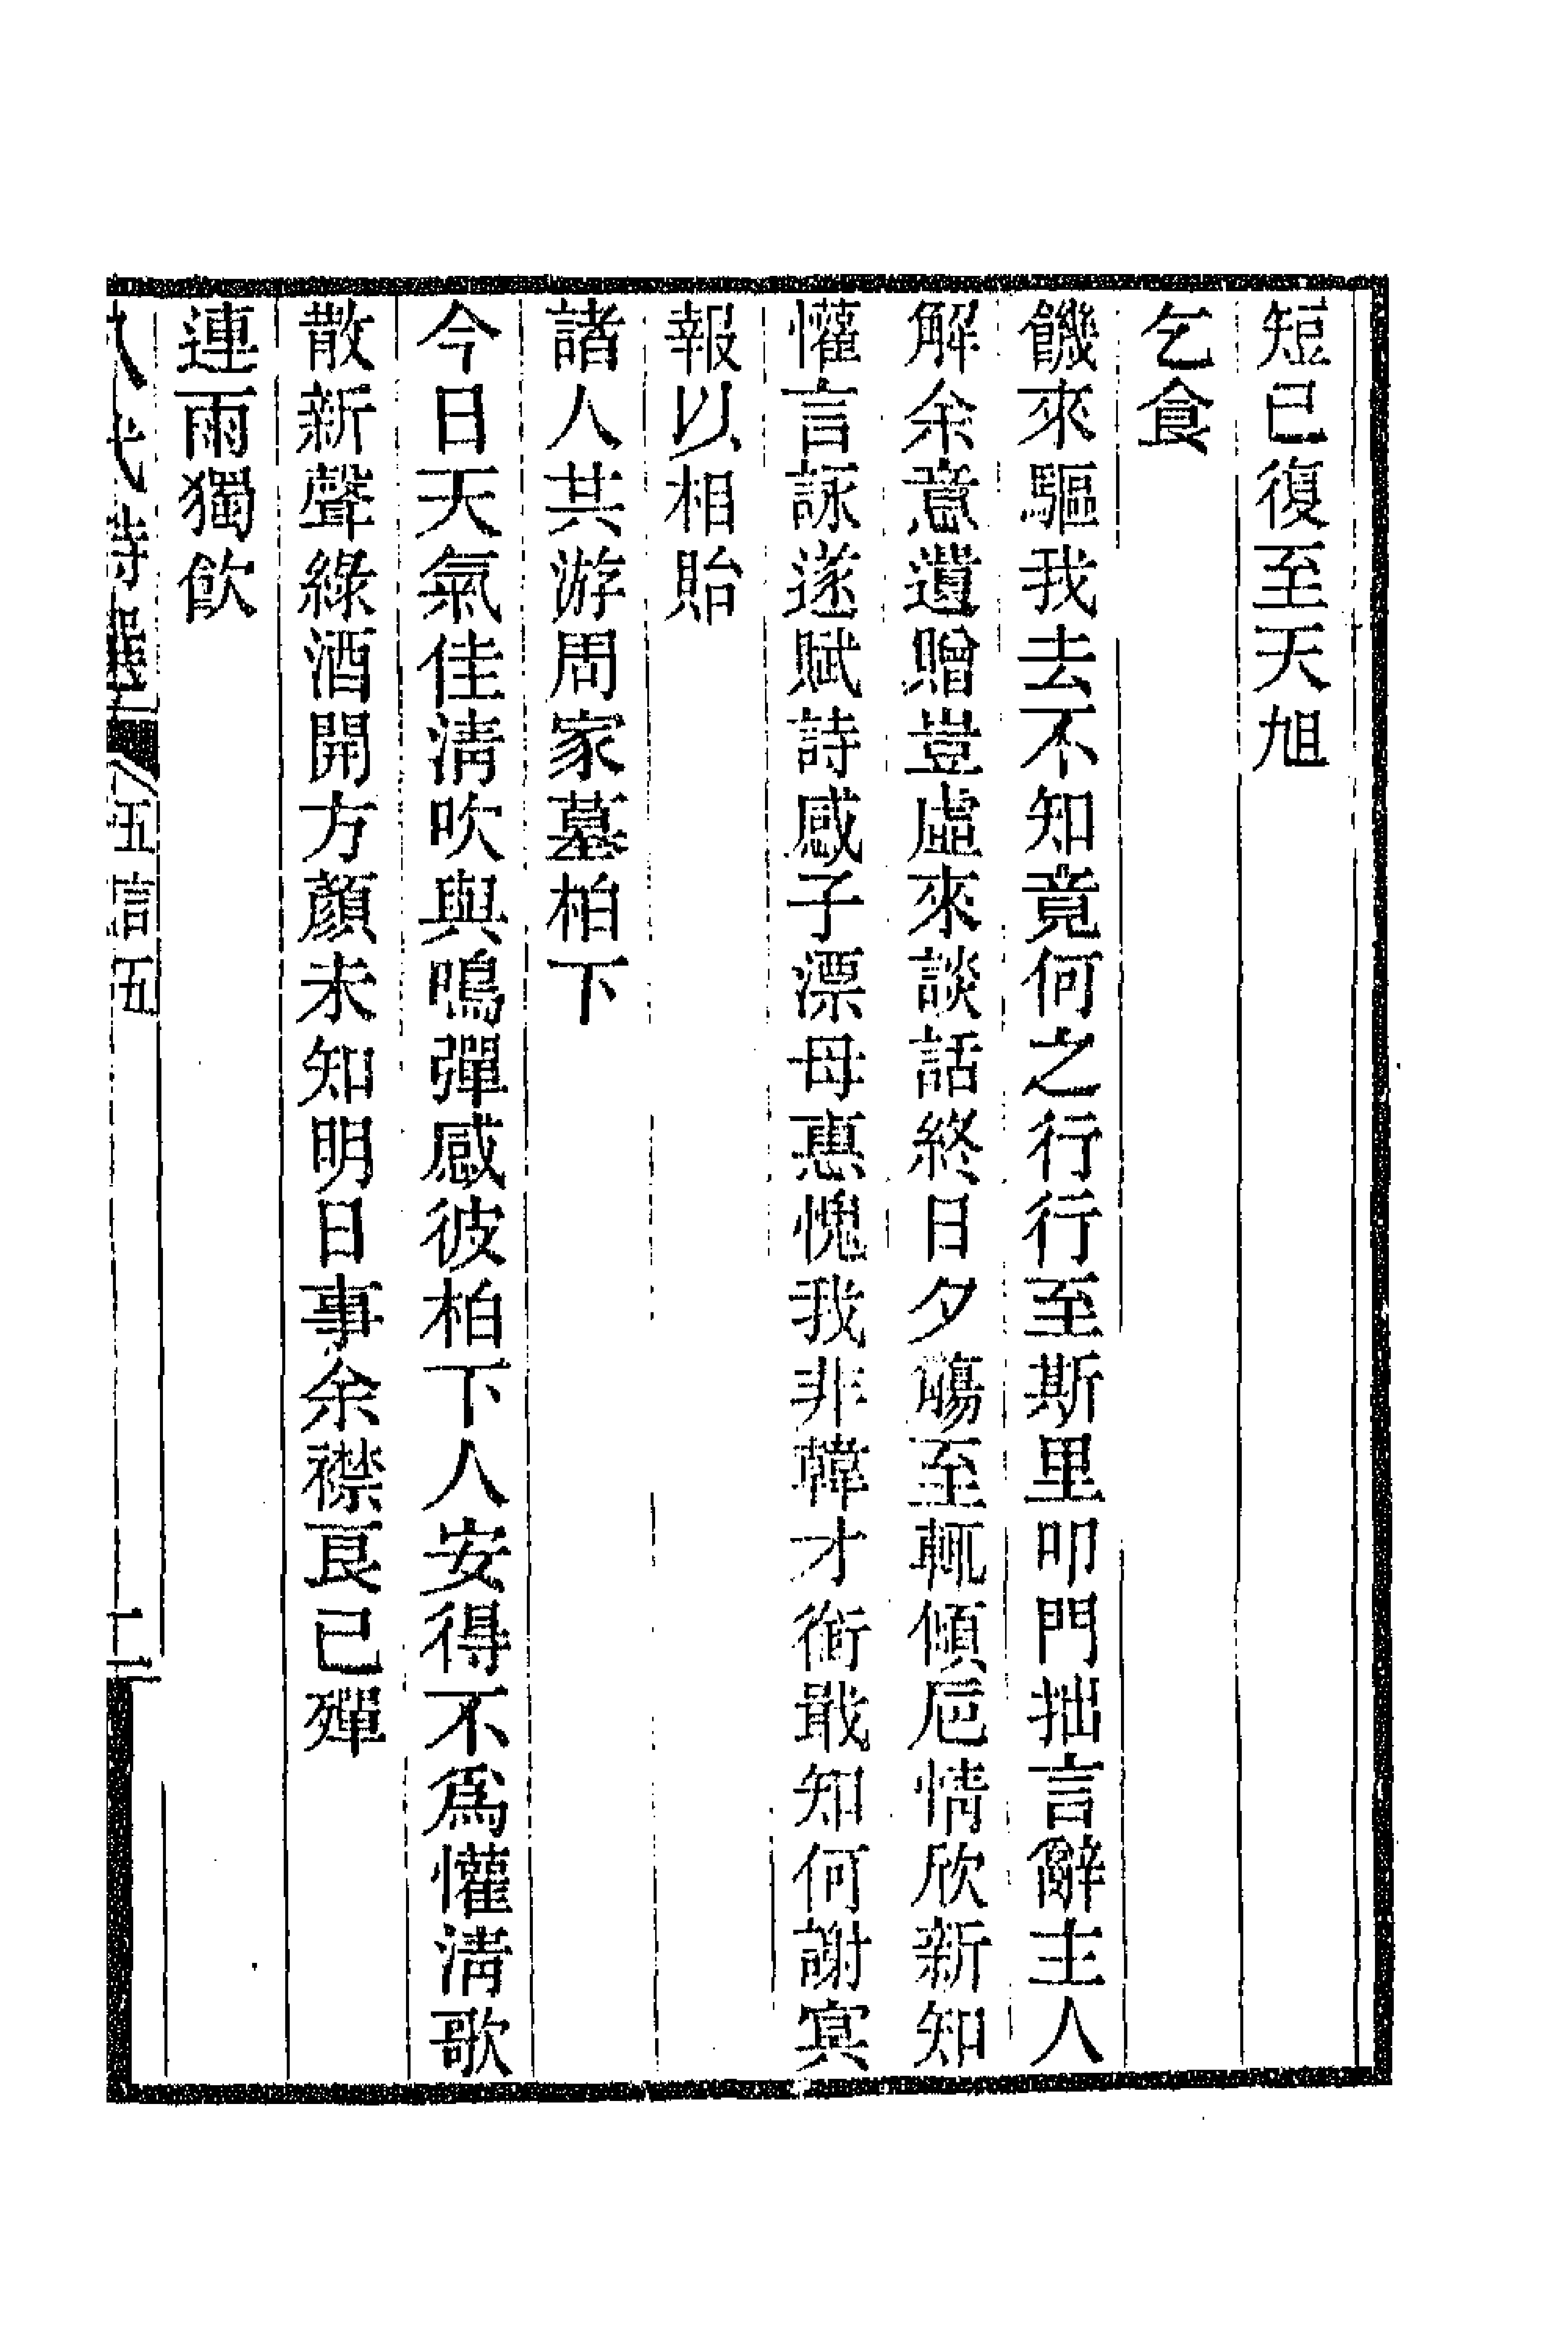 短已復至天旭
乞食
饑來驅我去不知竟何之行行至斯里叩門拙言辭主人
解余意遺贈豈虛來談話終日夕觴至輒傾巵情欣新知
懽言詠遂賦詩感子漂母惠愧我非韓才銜戢知何謝冥
報以相貽
諸人共游周家墓柏下
今日天氣佳淸吹與鳴彈感彼柏下人安得不爲懽淸歌
散新聲綠酒開方顏未知明日事余襟良已殫
連雨獨飮
八代詩選 五言五 十二